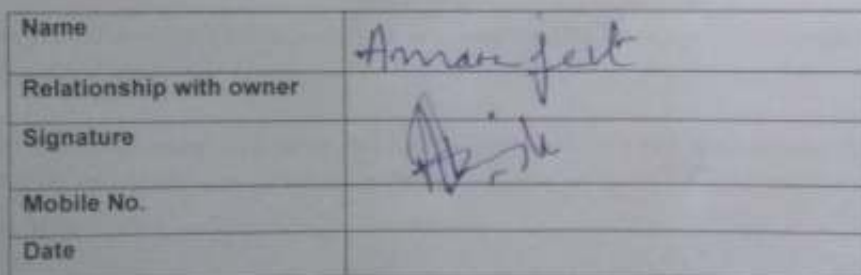 Name Amarjeet
Relationship with owner
Signature
Mobile No.
Date